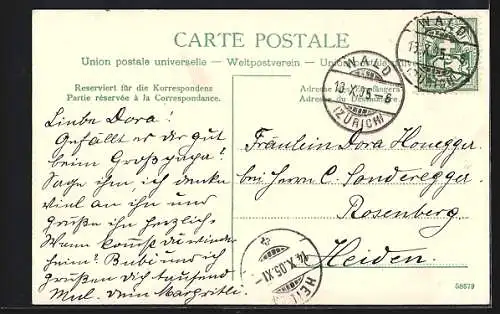 CARTE POSTALE
Union postale universelle – Weltpostverein – Union postale
Reserviert für die Korrespondenz
Partie réservée à la Correspondance.
Adresse
Adresse du Destinataire.
WALD
13.X.05.–6
(ZÜRICH)
WALD
13.X.05
Liebe Dora!
Gefällt es dir gut
beim Großpapa?
Sage ihm, ich denke
viel an ihn und
grüße ihn herzlich.
Wann kommst du wieder
heim? Bubi und ich
grüßen dich tausend
Mal. dein Margritli.
Fräulein Dora Honegger
bei Herrn C. Sonderegger.
Rosenberg
Heiden.
14.X.05.XI–
HEIDEN
58679